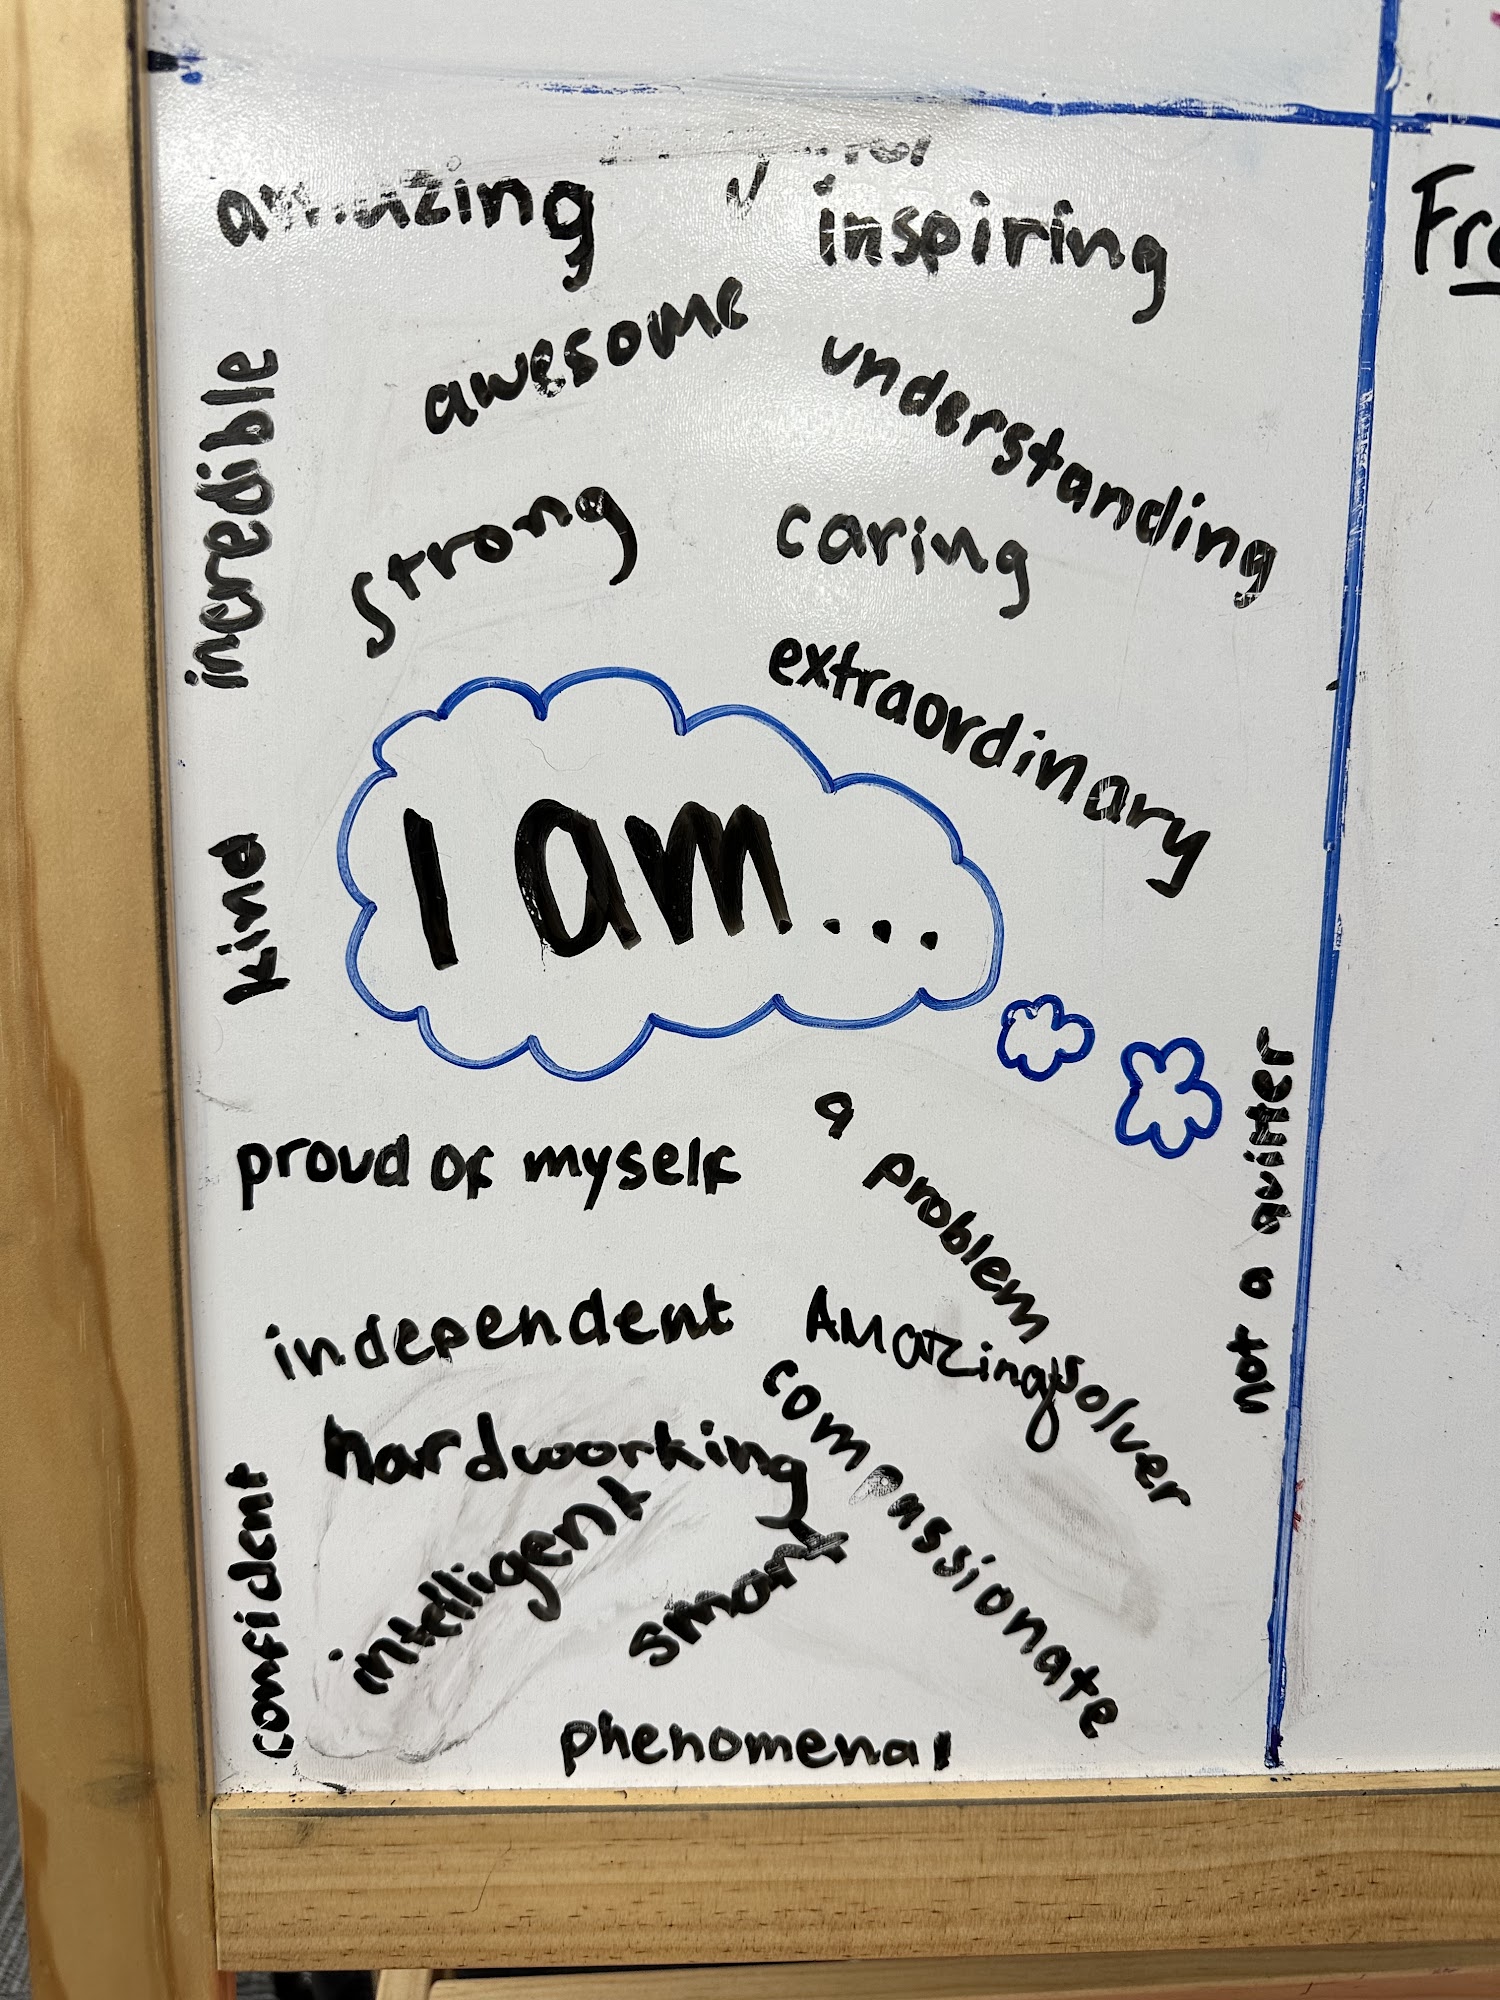 amazing
inspiring
awesome
understanding
incredible
strong
caring
extraordinary
I am...
kind
proud of myself
a problem solver
not a quitter
independent
AMAZing
hardworking
compassionate
intelligent
smart
confident
phenomenal